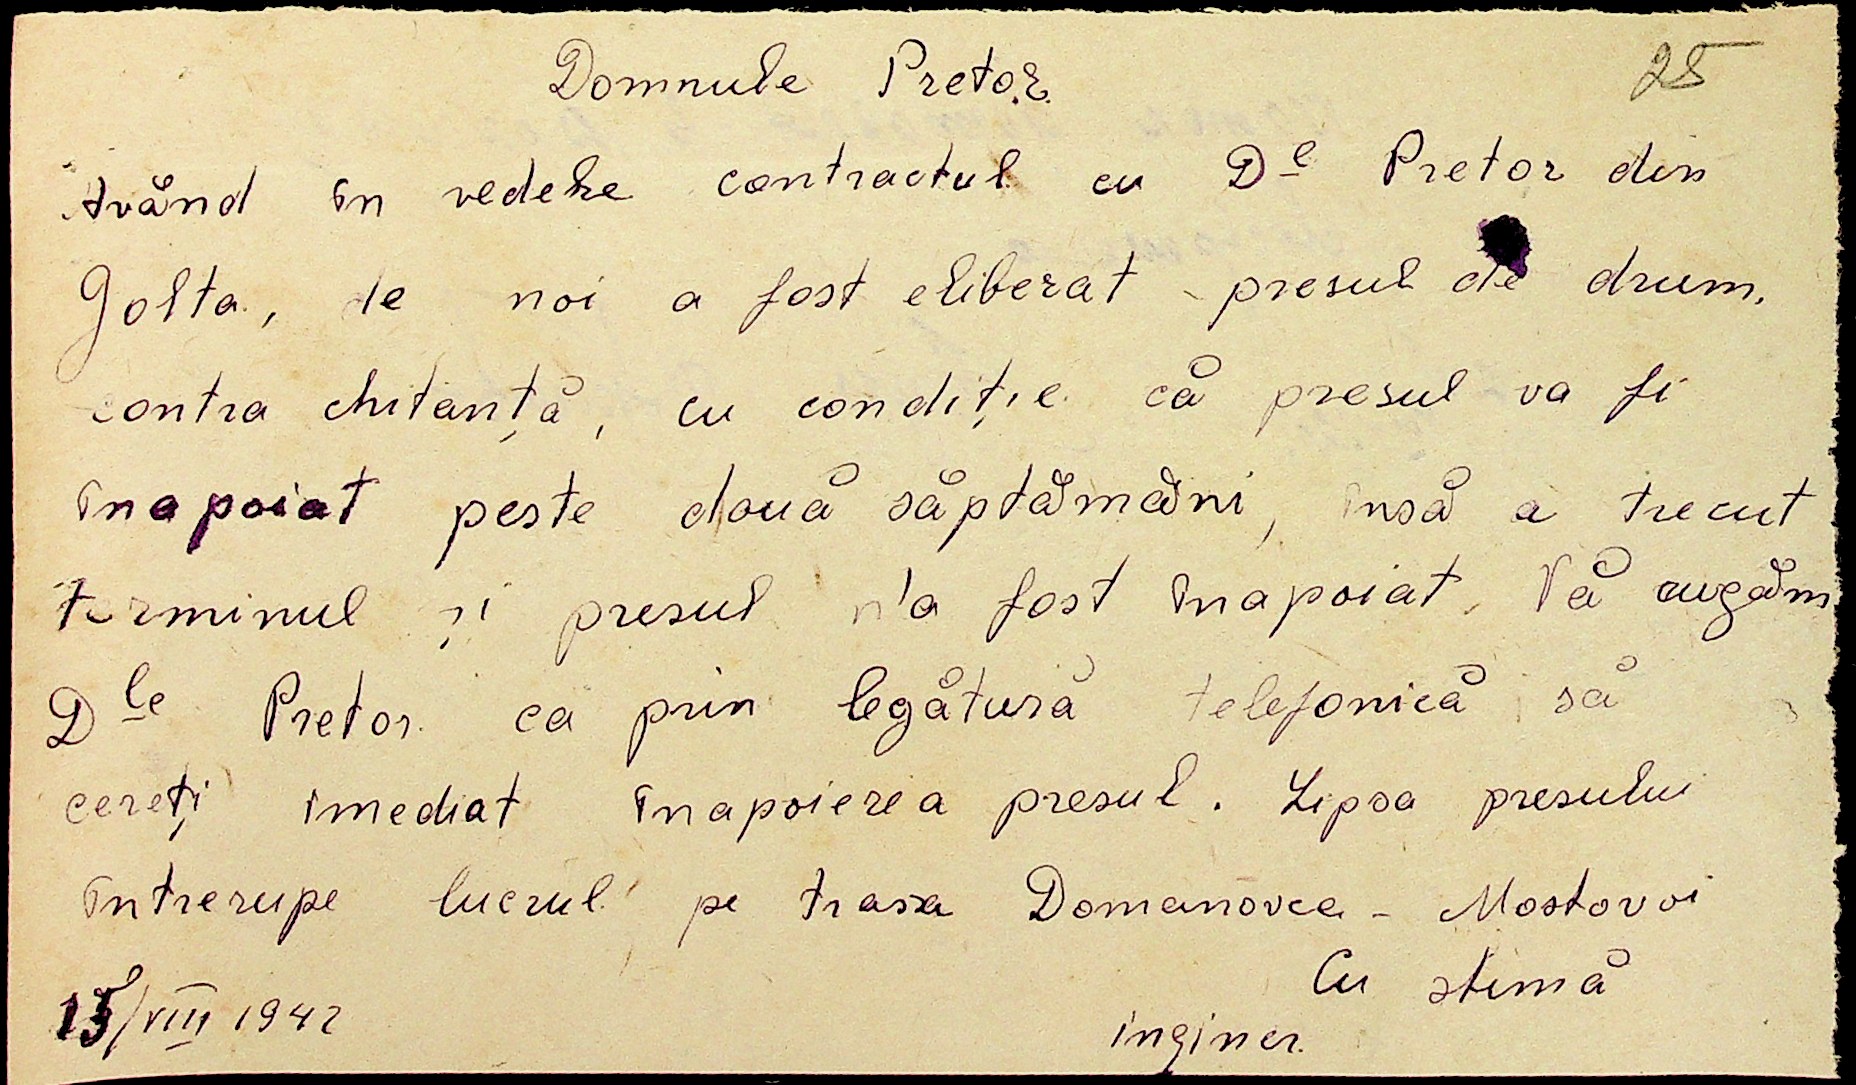 Domnule Pretor.
25
Având în vedere contractul cu Dle Pretor din
Golta, de noi a fost eliberat presul de drum.
contra chitanță, cu condiție că presul va fi
înapoiat peste două săptămăni, însă a trecut
terminul și presul n'a fost înapoiat. Vă rugăm
Dle Pretor ca prin legătură telefonică să
cereți imediat înapoierea presul. Lipsa presului
întrerupe lucrul pe trasa Domanovca - Mostovoi
Cu stimă
15/VIII 1942
inginer.